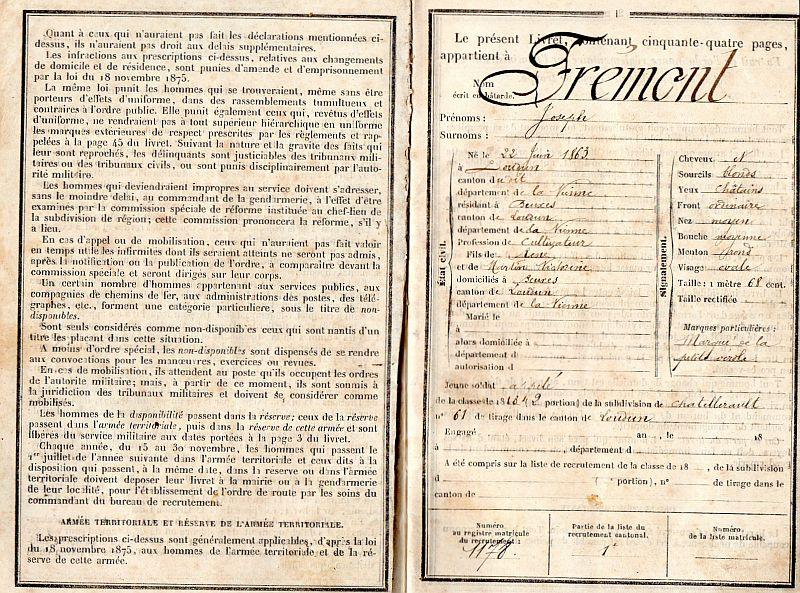 Quant à ceux qui n'auraient pas fait les déclarations mentionnées ci-
dessus, ils n'auraient pas droit aux delais supplémentaires.
Les infractions aux prescriptions ci-dessus, relatives aux changements
de domicile et de résidence, sont punies d'amende et d'emprisonnement
par la loi du 18 novembre 1875.
La même loi punit les hommes qui se trouveraient, même sans être
porteurs d'effets d'uniforme, dans des rassemblements tumultueux et
contraires à l'ordre public. Elle punit également ceux qui, revêtus d'effets
d'uniforme, ne rendraient pas à tout supérieur hiérarchique en uniforme
les marques exterieures de respect prescrites par les règlements et rap-
pelées à la page 45 du livret. Suivant la nature et la gravité des faits qui
leur sont reprochés, les délinquants sont justiciables des tribunaux mili-
taires ou des tribunaux civils, ou sont punis disciplinairement par l'auto-
rité militaire.
Les hommes qui deviendraient impropres au service doivent s'adresser,
sans le moindre délai, au commandant de la gendarmerie, à l'effet d'être
examinés par la commission spéciale de réforme instituée au chef-lieu de
la subdivision de région; cette commission prononcera la réforme, s'il y
a lieu.
En cas d'appel ou de mobilisation, ceux qui n'auraient pas fait valoir
en temps utile les infirmités dont ils seraient atteints ne seront pas admis,
après la notification ou la publication de l'ordre, à comparaitre devant la
commission speciale et seront dirigés sur leur corps.
Un certain nombre d'hommes appartenant aux services publics, aux
compagnies de chemins de fer, aux administrations des postes, des télé-
graphes, etc., forment une catégorie particulière, sous le titre de non-
disponibles.
Sont seuls considérés comme non-disponibles ceux qui sont nantis d'un
titre les placant dans cette situation.
A moins d'ordre spécial, les non-disponibles sont dispensés de se rendre
aux convocations pour les manœuvres, exercices ou revues.
En cas de mobilisation, ils attendent au poste qu'ils occupent les ordres
de l'autorité militaire; mais, à partir de ce moment, ils sont soumis à
la juridiction des tribunaux militaires et doivent se considérer comme
mobilisés.
Les hommes de la disponibilité passent dans la réserve; ceux de la réserve
passent dans l'armée territoriale, puis dans la réserve de cette armée et sont
libérés du service militaire aux dates portées à la page 3 du livret.
Chaque année, du 15 au 30 novembre, les hommes qui passent le
1er juillet de l'année suivante dans l'armée territoriale et ceux dits à la
disposition qui passent, à la même date, dans la reserve ou dans l'armée
territoriale doivent déposer leur livret à la mairie ou à la gendarmerie
de leur localité, pour l'établissement de l'ordre de route par les soins du
commandant du bureau de recrutement.
ARMÉE TERRITORIALE ET RÉSERVE DE L'ARMÉE TERRITORIALE.
Les prescriptions ci-dessus sont généralement applicables, d'après la loi
du 18 novembre 1875, aux hommes de l'armée territoriale et de la ré-
serve de cette armée.
Le présent Livret, contenant cinquante-quatre pages,
appartient à
Nom
écrit en bâtarde. Fremont
Prénoms : Joseph
Surnoms :
État civil.
Né le 22 Juin 1863
à Loudun
canton du dit
département de la Vienne
résidant à Beuxes
canton de Loudun
département de la Vienne
Profession de Cultivateur
Fils de René
et de Martin Victorine
domiciliés à Beuxes
canton de Loudun
département de la Vienne
Marié le
à
alors domiciliée à
département d
autorisation d
Signalement.
Cheveux N
Sourcils blonds
Yeux châtains
Front ordinaire
Nez moyen
Bouche moyenne
Menton rond
Visage ovale
Taille : 1 mètre 68 cent.
Taille rectifiée
Marques particulières :
Marqué de la
petite vérole
Jeune soldat appelé
de la classe de 18 portion) de la subdivision de Chatellerault
n° 61 de tirage dans le canton de Loudun
Engagé au , le 18
à , département d
A été compris sur la liste de recrutement de la classe de 18 , de la subdivision
d ( portion), n° de tirage dans le
canton de
Numéro
au registre matricule
du recrutement :
1178
Partie de la liste du
recrutement cantonal.
1e
Numéro
de la liste matricule.